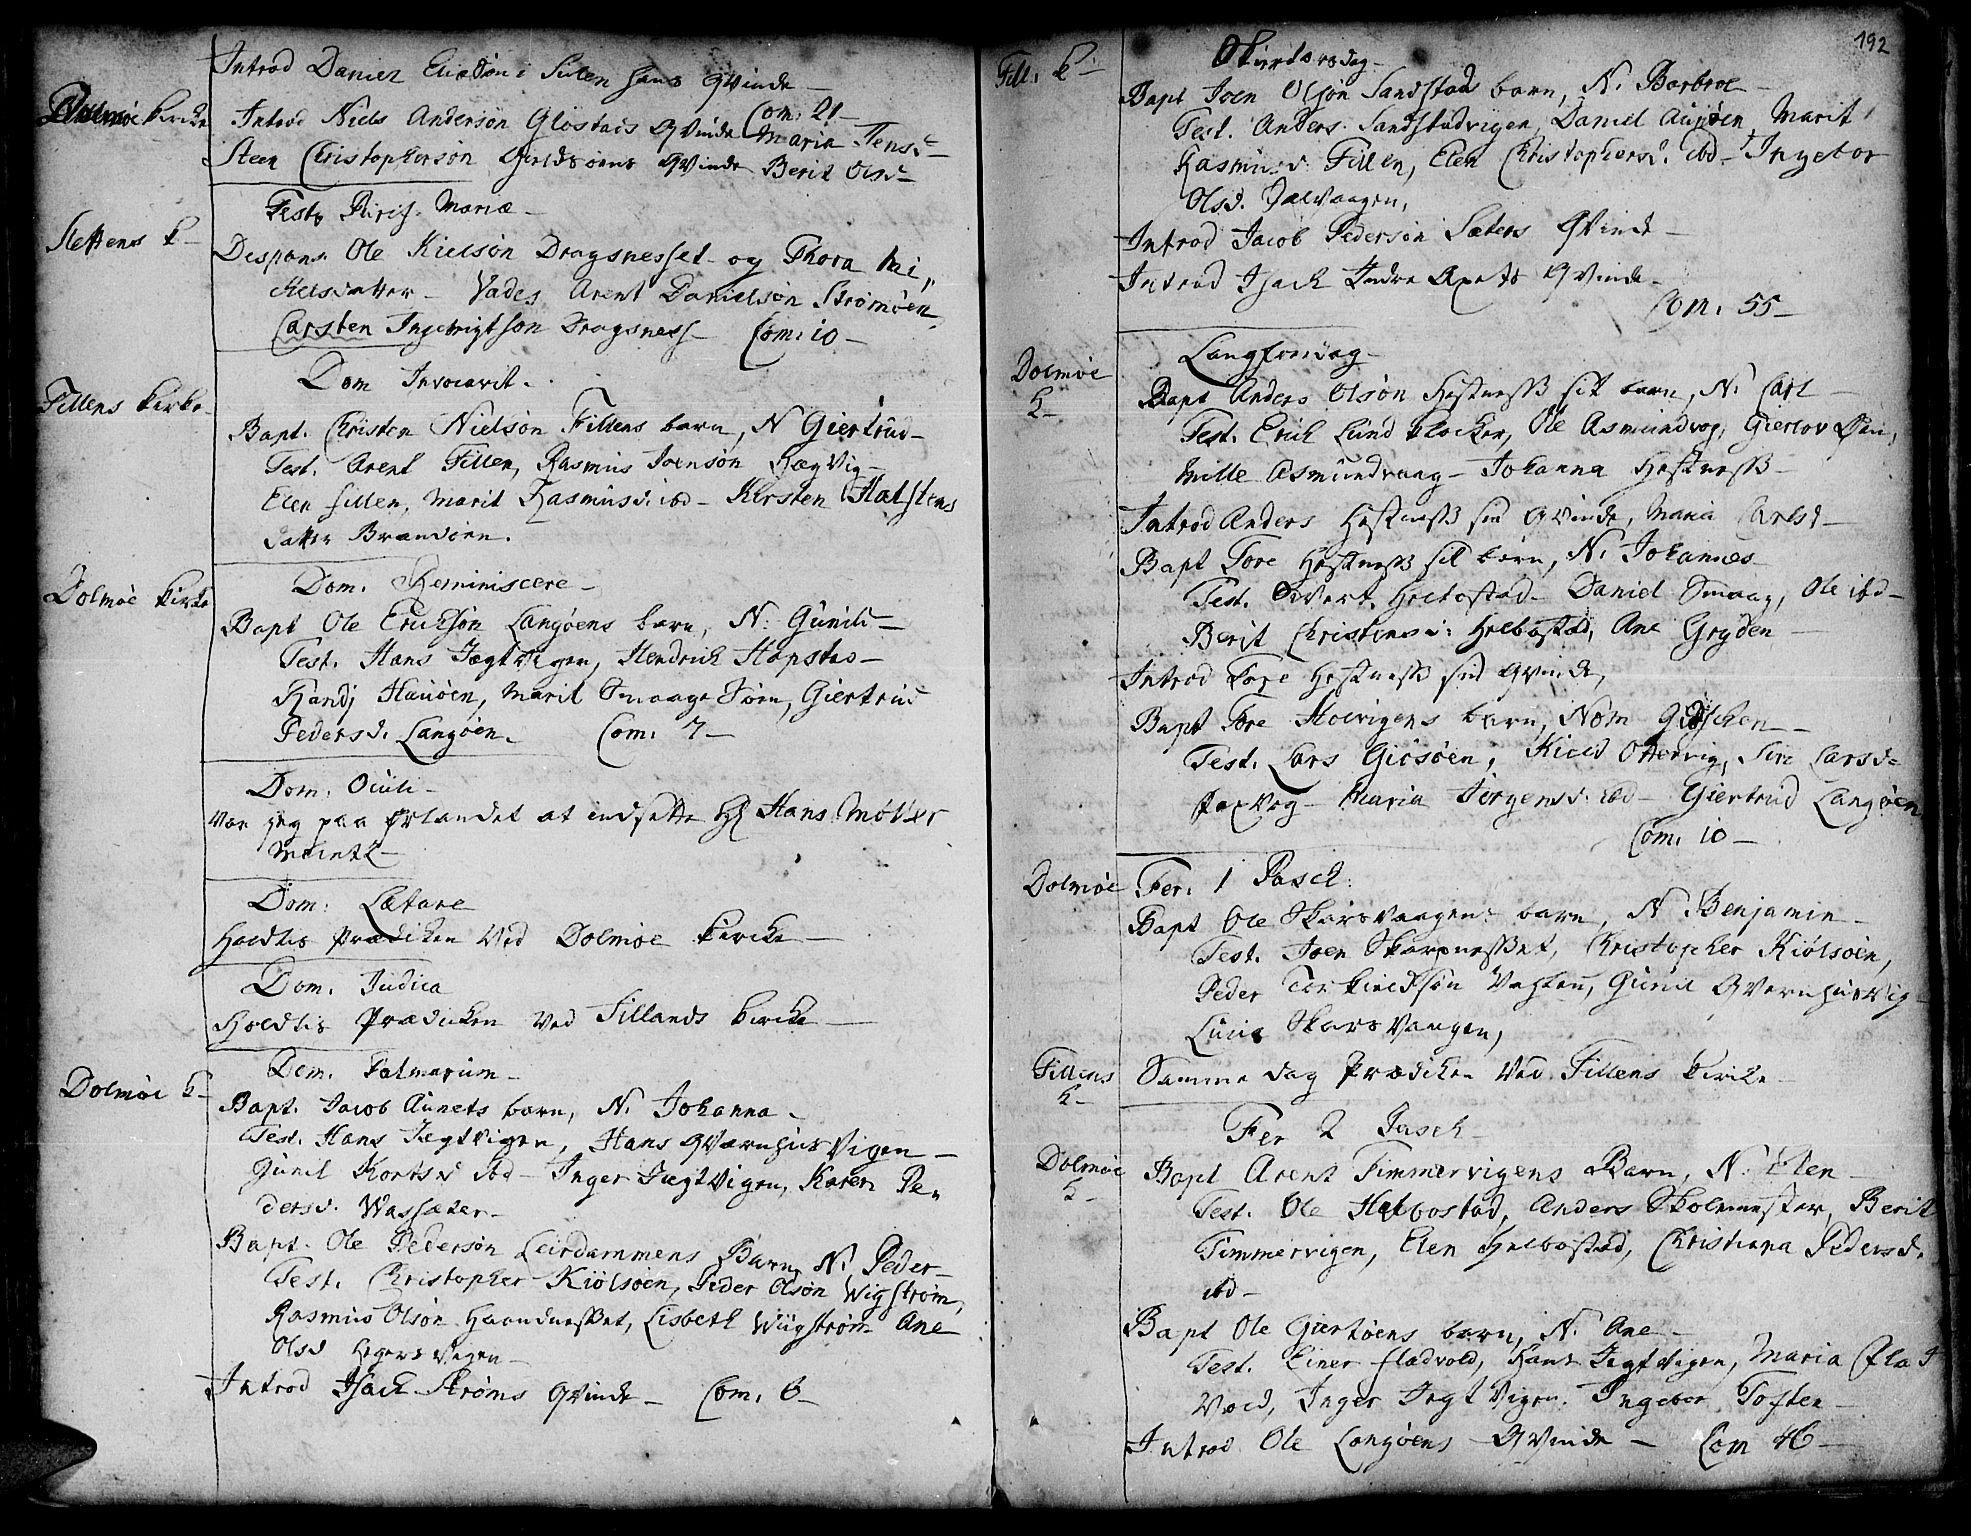 Introd Daniel Eliasøn i Sulen hans Qvinde –
Dolmøe Kircke
Introd Niels Andersøn Gløstads Qvinde Com: 21 –
Maria Jensd –
Steen Christophersøn Qvinde Berit Olsd –
Festo Purif. Mariæ –
Slettens K –
Despons. Ole Kielsøn Dragsnesset og Thora Mi„
chelsdatter – Vades Arent Danielsøn Strømøen,
Carsten Ingebrigtsøn Dragsness – Com: 10 –
Dom Invocavit –
Fillens Kirke
Bapt. Christen Nielsøn Fillens barn, N Giertrud –
Test. Arent Fillen, Rasmus Joensøn Hægvig –
Elen Fillen, Marit Rasmusd: ibd – Kirsten Halstens
datter Brandøen.
Dom. Reminiscere –
Dolmøe Kircke
Bapt Ole Erichsøn Langøens barn, N: Gunild –
Test. Hans Jægtvigen, Hendrich Hopstad –
Randj Hauøen, Marit Smaage Søen, Giertrud
Pedersd. Langøen. Com: 7 –
Dom: Oculi –
Var jeg paa Ørlandet at indsette Hr Hans Møller
Meintz –
Dom: Lætare
Holdtes Prædiken Ved Dolmøe Kircke –
Dom. Judica
Holdtes Prædicken Ved Fillands Kircke –
Dom. Palmarum –
Dolmøe K –
Bapt. Jacob Aunets barn, N. Johanna –
Test. Hans Jægtvigen, Hans Qværnhusvigen –
Gunil Kortsd ibd – Inger Jægtvigen, Karen Pe„
dersd. Wassæter –
Bapt. Ole Pedersøn Leirdammens Barn, N: Peder –
Test. Christopher Kiølsøen, Peder Olsøn Wigstrøm,
Rasmus Olsøn Haandnesset, Lisbeth Wiigstrøm Ane
Olsd Hegersvegen –
Introd Isach Strøms Qvinde – Com. 6 –
192
Fill. K –
Skiertorsdag –
Bapt Joen Olsøn Sandstad barn, N. Barbroe –
Test. Anders Sandstadvigen, Daniel Aunøen, Marit
Rasmusd. Fillen, Elen Christophersd. ibd – Ingebor
Olsd. Jalvaagen,
Introd Jacob Pedersøn Sæters Qvinde –
Introd Isach Qvinde –
Com. 55 –
Langfredag –
Dolmøe
K –
Bapt Anders Olsøn Hestness sit barn, N. Carl –
Test. Erich Lund Klocker, Ole Asmundvog, Gierlov Øen,
Mille Asmundvaag – Johanna Hestness –
Introd Anders Hestness sin Qvinde, Maria Carlsd –
Bapt Tore Hestness sit barn, N. Johannes –
Test. Sivert Helbostad – Daniel Smaag, Ole ibd –
Berit Christensd: Helbostad, Ane Gryden –
Introd Tore Hestness sin Qvinde,
Bapt Tore Holvigens barn, Nom Gidschen –
Test. Lars Giøsøen, Kield Ottervig, Siri Larsd –
Faxvog – Maria Jørgensd. ibd – Giertrud Langøen
Com: 10 –
Dolmøe
Fer. 1 Pasch.
Bapt Ole Skarsvaagens barn, N Benjamin –
Test. Joen Skarpnesset, Christopher Kiølsøen,
Peder Torkieldsøn Vahlen, Gunil Qvernhusvig –
Lucia Skarsvaagen,
Fillens
K –
Samme dag Prædiken Ved Fillens Kircke –
Fer 2 Pasch –
Dolmøe
K –
Bapt Arent Timmervigens Barn, N. Elen –
Test. Ole Helbostad, Anders Skolemester, Berit
Timmervigen, Elen Helbostad, Christiana Pedersd.
ibd –
Bapt Ole Giertøens barn, N. Ane –
Test. Einer Fladvold, Hans Jegtvigen, Maria Flad
vold, Inger Jegtvigen. Ingebor Toften –
Introd Ole Langøens Qvinde – Com 46 –